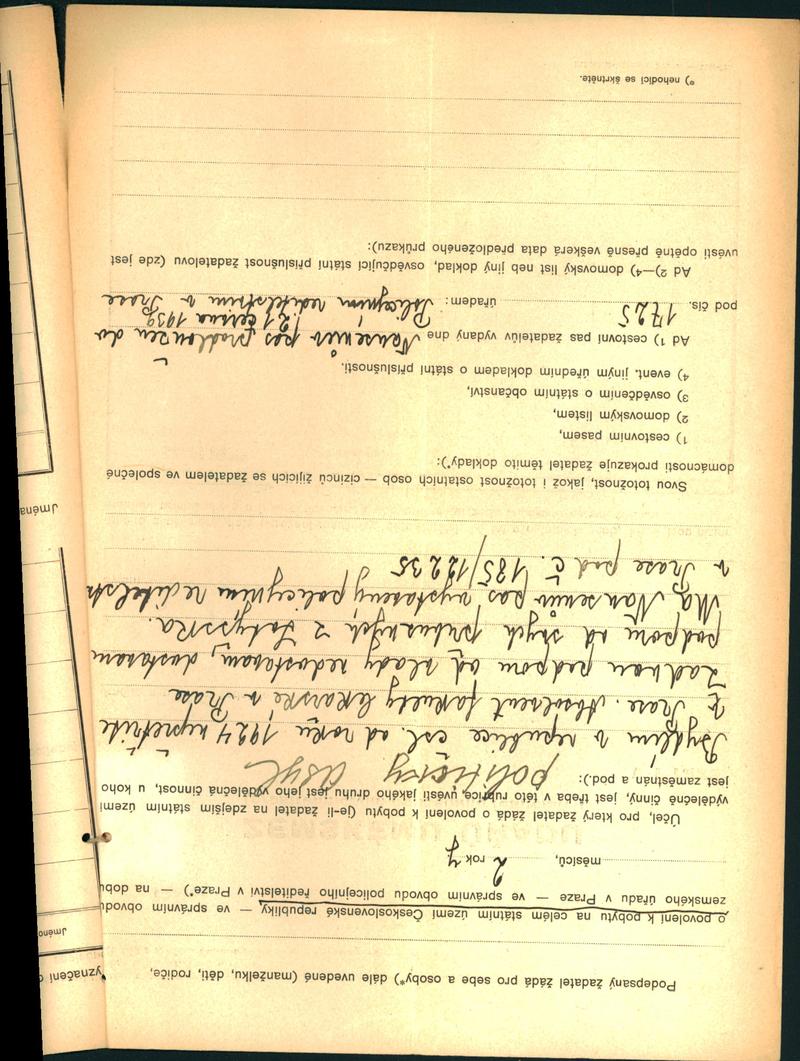 Podepsaný žadatel žádá pro sebe a osoby*) dále uvedené (manželku, děti, rodiče,
o povolení k pobytu na celém státním území Československé republiky — ve správním obvodu
zemského úřadu v Praze — ve správním obvodu policejního ředitelství v Praze*) — na dobu
měsíců, 2 rok y
Účel, pro který žadatel žádá o povolení k pobytu (je-li žadatel na zdejším státním území
výdělečně činný, jest třeba v této rubrice uvésti jakého druhu jest jeho výdělečná činnost, u koho
jest zaměstnán a pod.): politický asyl
Bydlím v republice čsl. od roku 1924 nepřetržitě
v Praze. Absolvent fakulty lékařské v Praze
žádnou podporu od vlády nedostávám, dostávám
podporu od svých příbuzných z Lotyšska.
Mám Nansenův pas vystavený policejním ředitelstv
v Praze pod č. 185/12235
Svou totožnost, jakož i totožnost ostatních osob — cizinců žijících se žadatelem ve společné
domácnosti prokazuje žadatel těmito doklady*):
1) cestovním pasem,
2) domovským listem,
3) osvědčením o státním občanství,
4) event. jiným úředním dokladem o státní příslušnosti.
Ad 1) cestovní pas žadatelův vydaný dne Nansenův pas prodloužen do
21 června 1939
pod čís. 1725 úřadem: Policejním ředitelstvím v Praze
Ad 2)—4) domovský list neb jiný doklad, osvědčující státní příslušnost žadatelovu (zde jest
uvésti opětně přesně veškerá data předloženého průkazu):
*) nehodící se škrtněte.
yznačení
Jméno
Jména